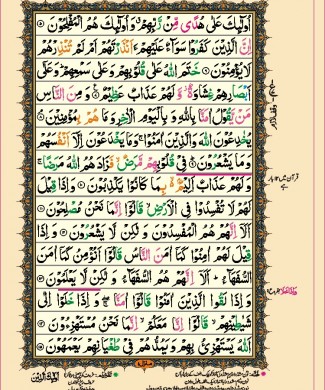 اُولٰٓئِكَ عَلٰى هُدًى مِّنْ رَّبِّهِمْ ۙ وَ اُولٰٓئِكَ هُمُ الْمُفْلِحُوْنَ ۝
اِنَّ الَّذِيْنَ كَفَرُوْا سَوَآءٌ عَلَيْهِمْ ءَاَنْذَرْتَهُمْ اَمْ لَمْ تُنْذِرْهُمْ
لَا يُؤْمِنُوْنَ ۝ خَتَمَ اللّٰهُ عَلٰى قُلُوْبِهِمْ وَ عَلٰى سَمْعِهِمْ ؕ وَ عَلٰٓى
اَبْصَارِهِمْ غِشَاوَةٌ ؗ وَّ لَهُمْ عَذَابٌ عَظِيْمٌ ۝ وَ مِنَ النَّاسِ
مَنْ يَّقُوْلُ اٰمَنَّا بِاللّٰهِ وَ بِالْيَوْمِ الْاٰخِرِ وَ مَا هُمْ بِمُؤْمِنِيْنَ ۝
يُخٰدِعُوْنَ اللّٰهَ وَ الَّذِيْنَ اٰمَنُوْا ۚ وَ مَا يَخْدَعُوْنَ اِلَّاۤ اَنْفُسَهُمْ
وَ مَا يَشْعُرُوْنَ ۝ فِيْ قُلُوْبِهِمْ مَّرَضٌ ۙ فَزَادَهُمُ اللّٰهُ مَرَضًا ۚ
وَ لَهُمْ عَذَابٌ اَلِيْمٌۢ ۙ بِمَا كَانُوْا يَكْذِبُوْنَ ۝ وَ اِذَا قِيْلَ
لَهُمْ لَا تُفْسِدُوْا فِي الْاَرْضِ ۙ قَالُوْۤا اِنَّمَا نَحْنُ مُصْلِحُوْنَ ۝
اَلَاۤ اِنَّهُمْ هُمُ الْمُفْسِدُوْنَ وَ لٰكِنْ لَّا يَشْعُرُوْنَ ۝ وَ اِذَا
قِيْلَ لَهُمْ اٰمِنُوْا كَمَاۤ اٰمَنَ النَّاسُ قَالُوْۤا اَنُؤْمِنُ كَمَاۤ اٰمَنَ
السُّفَهَآءُ ؕ اَلَاۤ اِنَّهُمْ هُمُ السُّفَهَآءُ وَ لٰكِنْ لَّا يَعْلَمُوْنَ ۝
وَ اِذَا لَقُوا الَّذِيْنَ اٰمَنُوْا قَالُوْۤا اٰمَنَّا ۖۚ وَ اِذَا خَلَوْا اِلٰى
شَيٰطِيْنِهِمْ ۙ قَالُوْۤا اِنَّا مَعَكُمْ ۙ اِنَّمَا نَحْنُ مُسْتَهْزِءُوْنَ ۝
اَللّٰهُ يَسْتَهْزِئُ بِهِمْ وَ يَمُدُّهُمْ فِيْ طُغْيَانِهِمْ يَعْمَهُوْنَ ۝